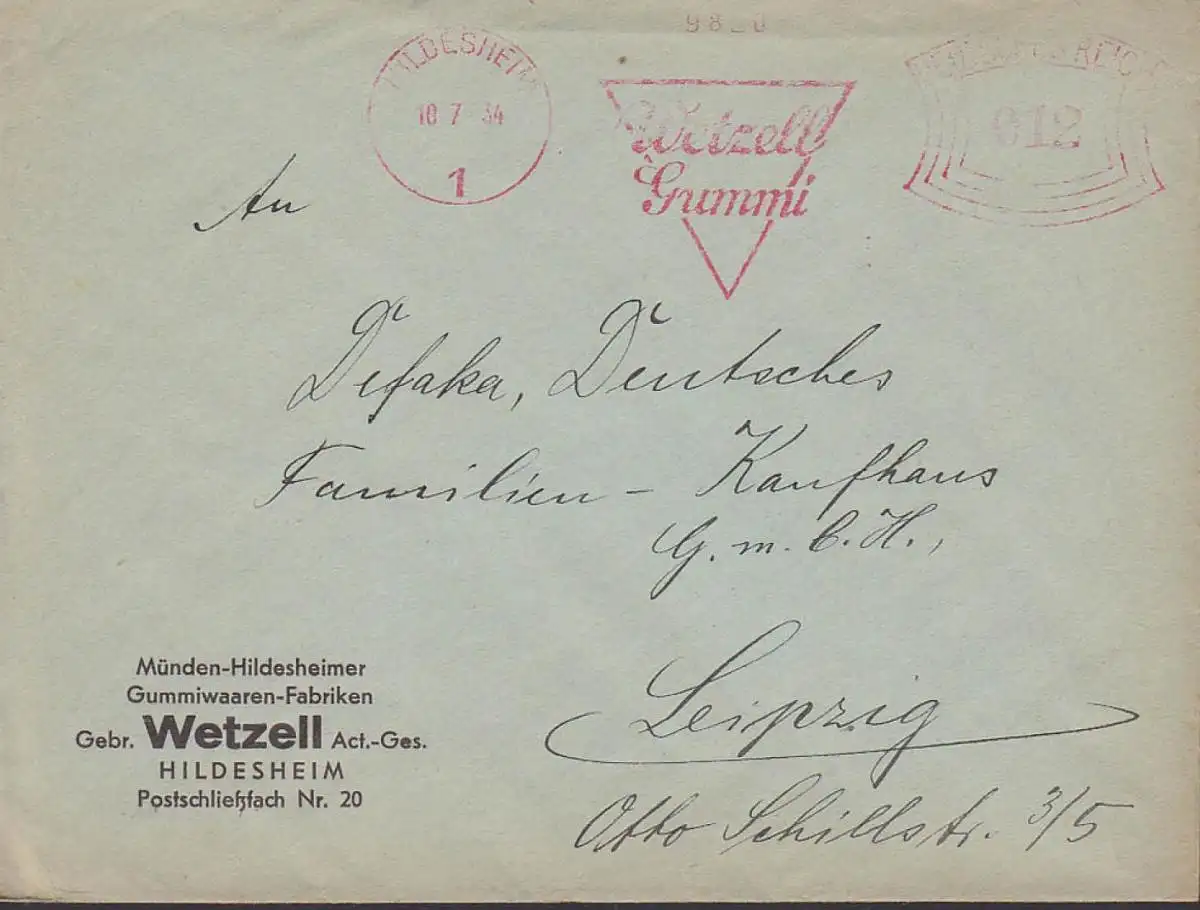 HILDESHEIM
10 7 34
1
Wetzell
Gummi
012
An
Defaka, Deutsches
Familien - Kaufhaus
G. m. b. H.,
Leipzig
Otto Schillstr. 3/5
Münden-Hildesheimer
Gummiwaaren-Fabriken
Gebr. Wetzell Act.-Ges.
HILDESHEIM
Postschließfach Nr. 20